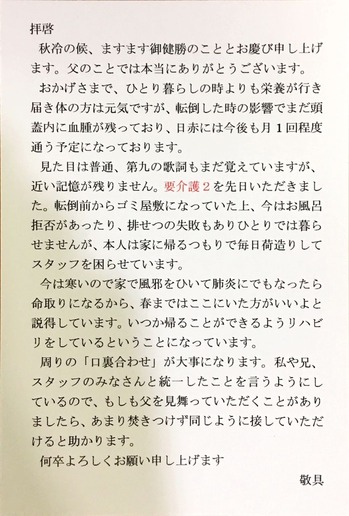 拝啓
秋冷の候、ますます御健勝のこととお慶び申し上げ
ます。父のことでは本当にありがとうございます。
おかげさまで、ひとり暮らしの時よりも栄養が行き
届き体の方は元気ですが、転倒した時の影響でまだ頭
蓋内に血腫が残っており、日赤には今後も月１回程度
通う予定になっております。
見た目は普通、第九の歌詞もまだ覚えていますが、
近い記憶が残りません。要介護２を先日いただきまし
た。転倒前からゴミ屋敷になっていた上、今はお風呂
拒否があったり、排せつの失敗もありひとりでは暮ら
せませんが、本人は家に帰るつもりで毎日荷造りして
スタッフを困らせています。
今は寒いので家で風邪をひいて肺炎にでもなったら
命取りになるから、春まではここにいた方がいいよと
説得しています。いつか帰ることができるようリハビ
リをしているということになっています。
周りの「口裏合わせ」が大事になります。私や兄、
スタッフのみなさんと統一したことを言うようにし
ているので、もしも父を見舞っていただくことがあり
ましたら、あまり焚きつけず同じように接していただ
けると助かります。
何卒よろしくお願い申し上げます
敬具